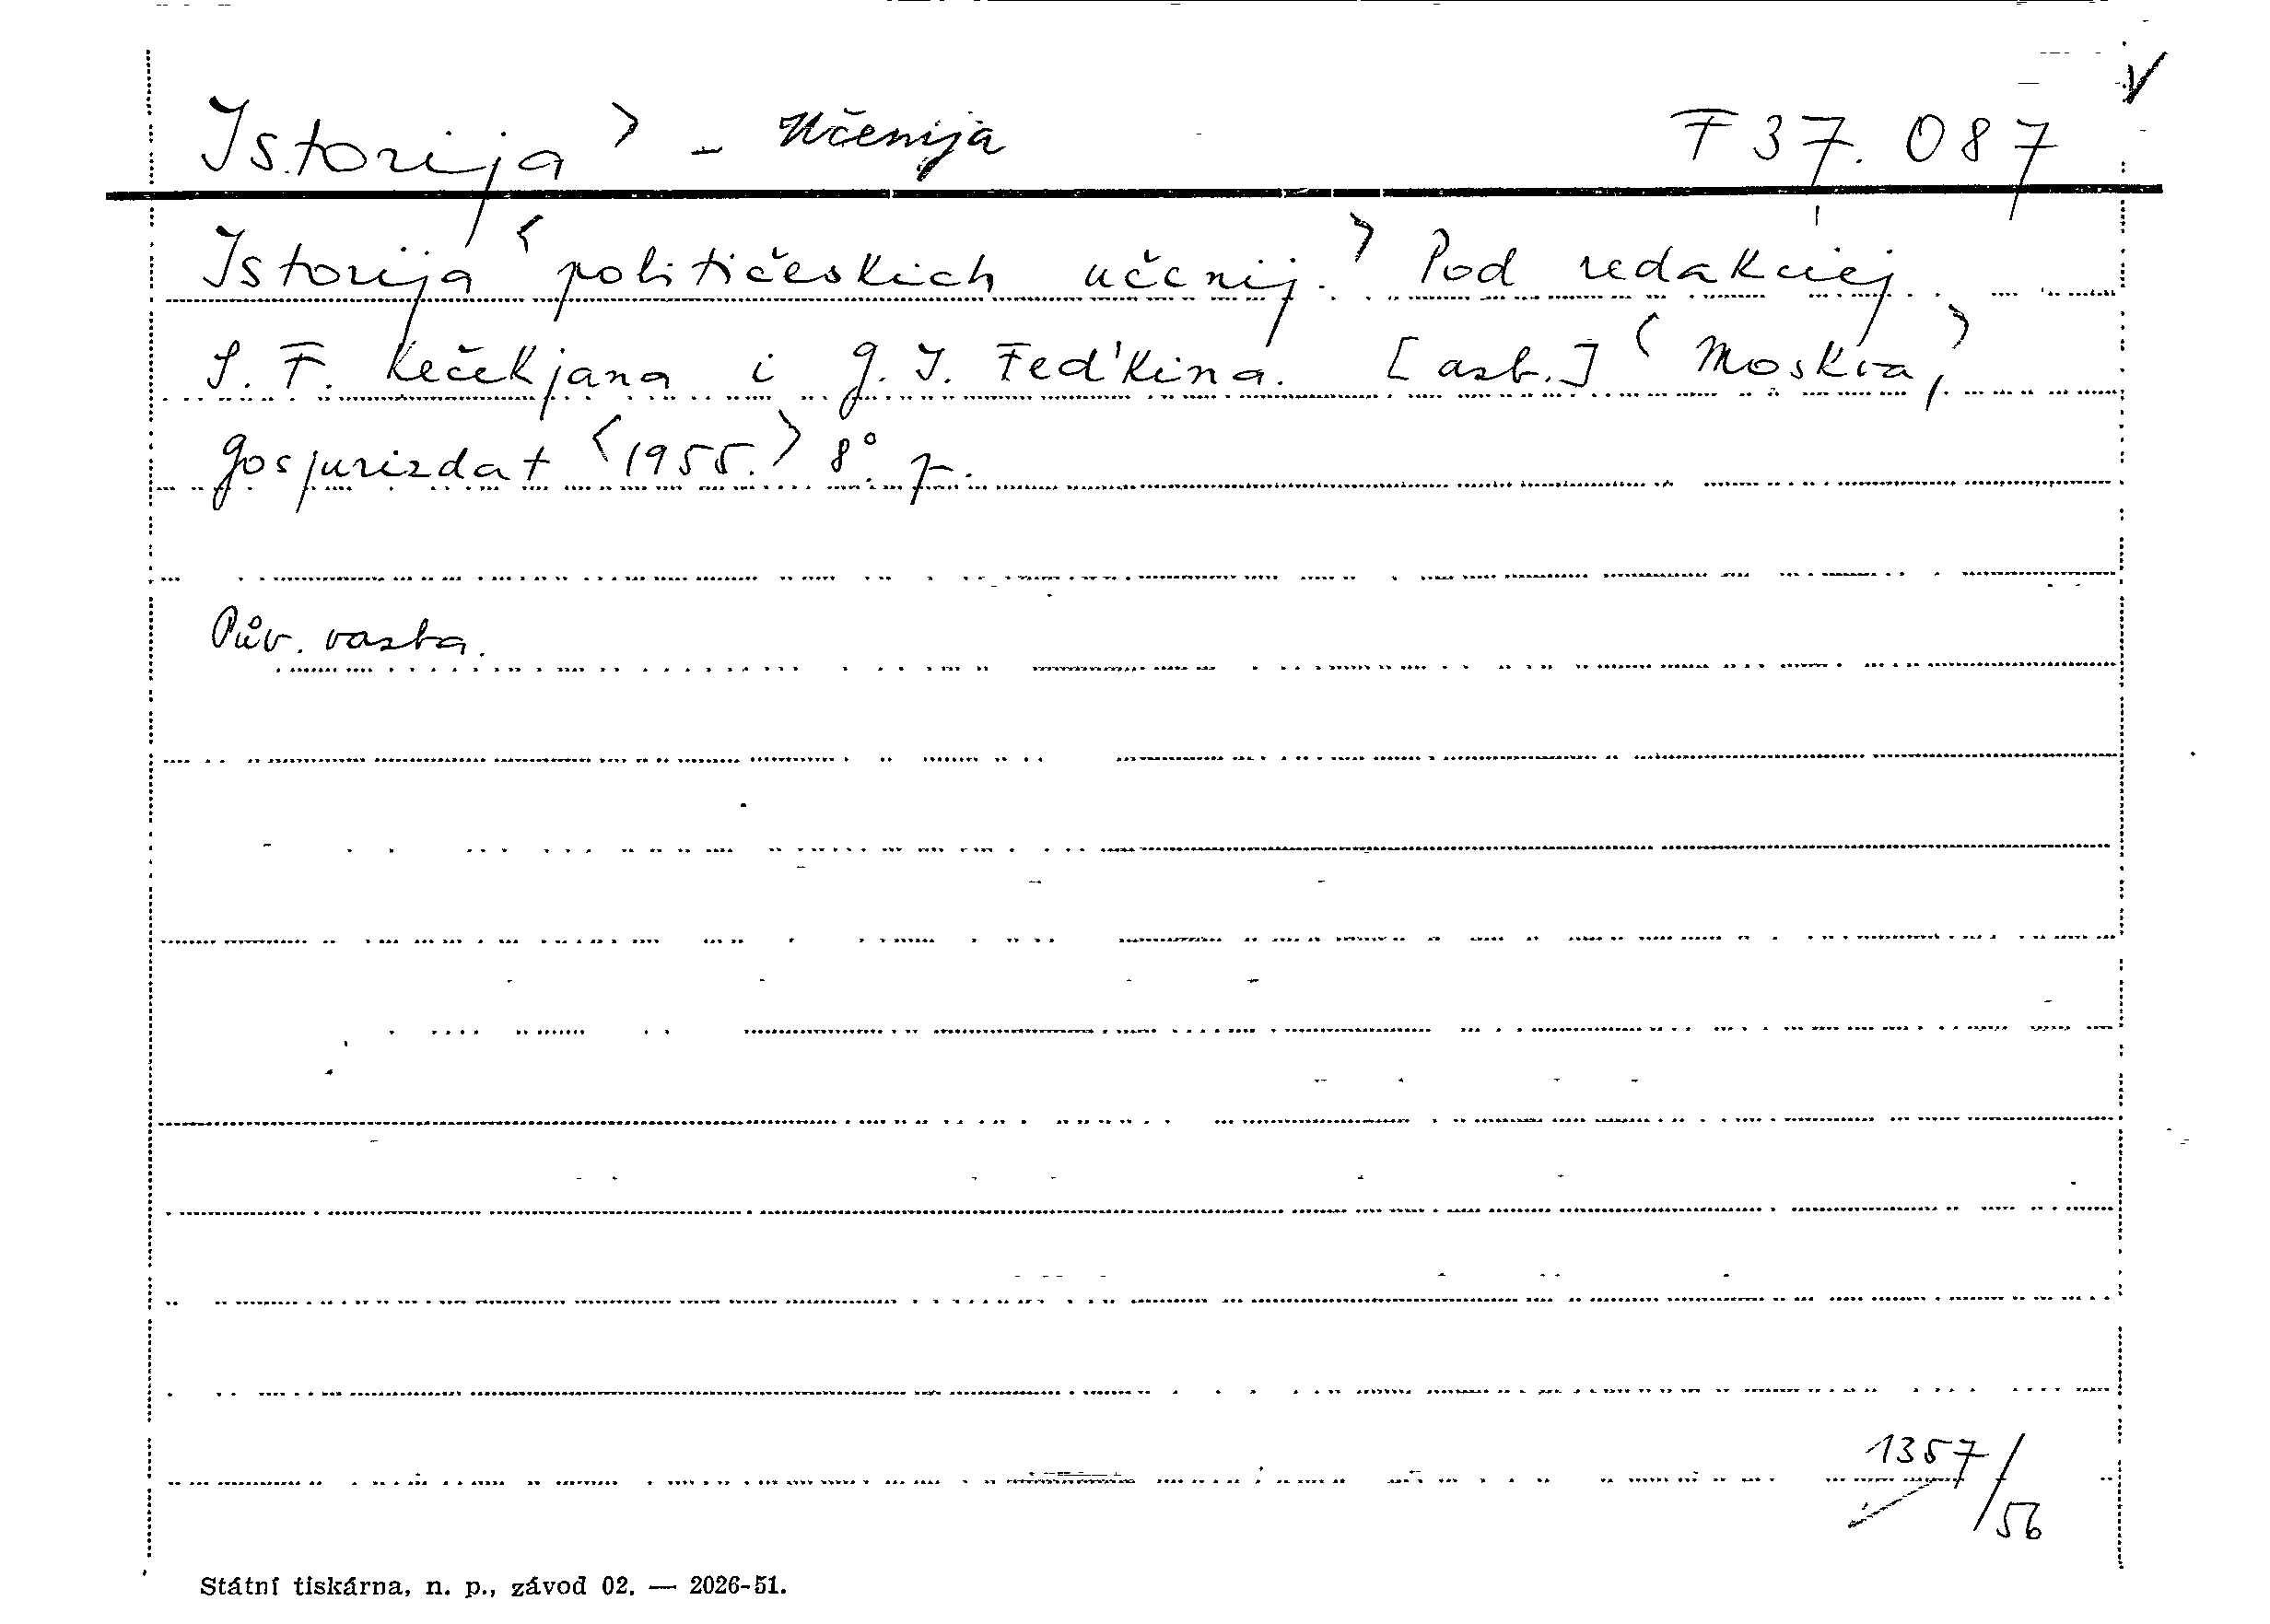 Istorija > - Učenija F 37.087 V
Istorija < političeskich učenij. > Pod redakciej
S. F. Kečekjana i G. I. Fed'kina. [azb.] < Moskva, >
Gosjurizdat < 1955. > 8°. p.
Pův. vazba.
1357/56
Státní tiskárna, n. p., závod 02. — 2026-51.